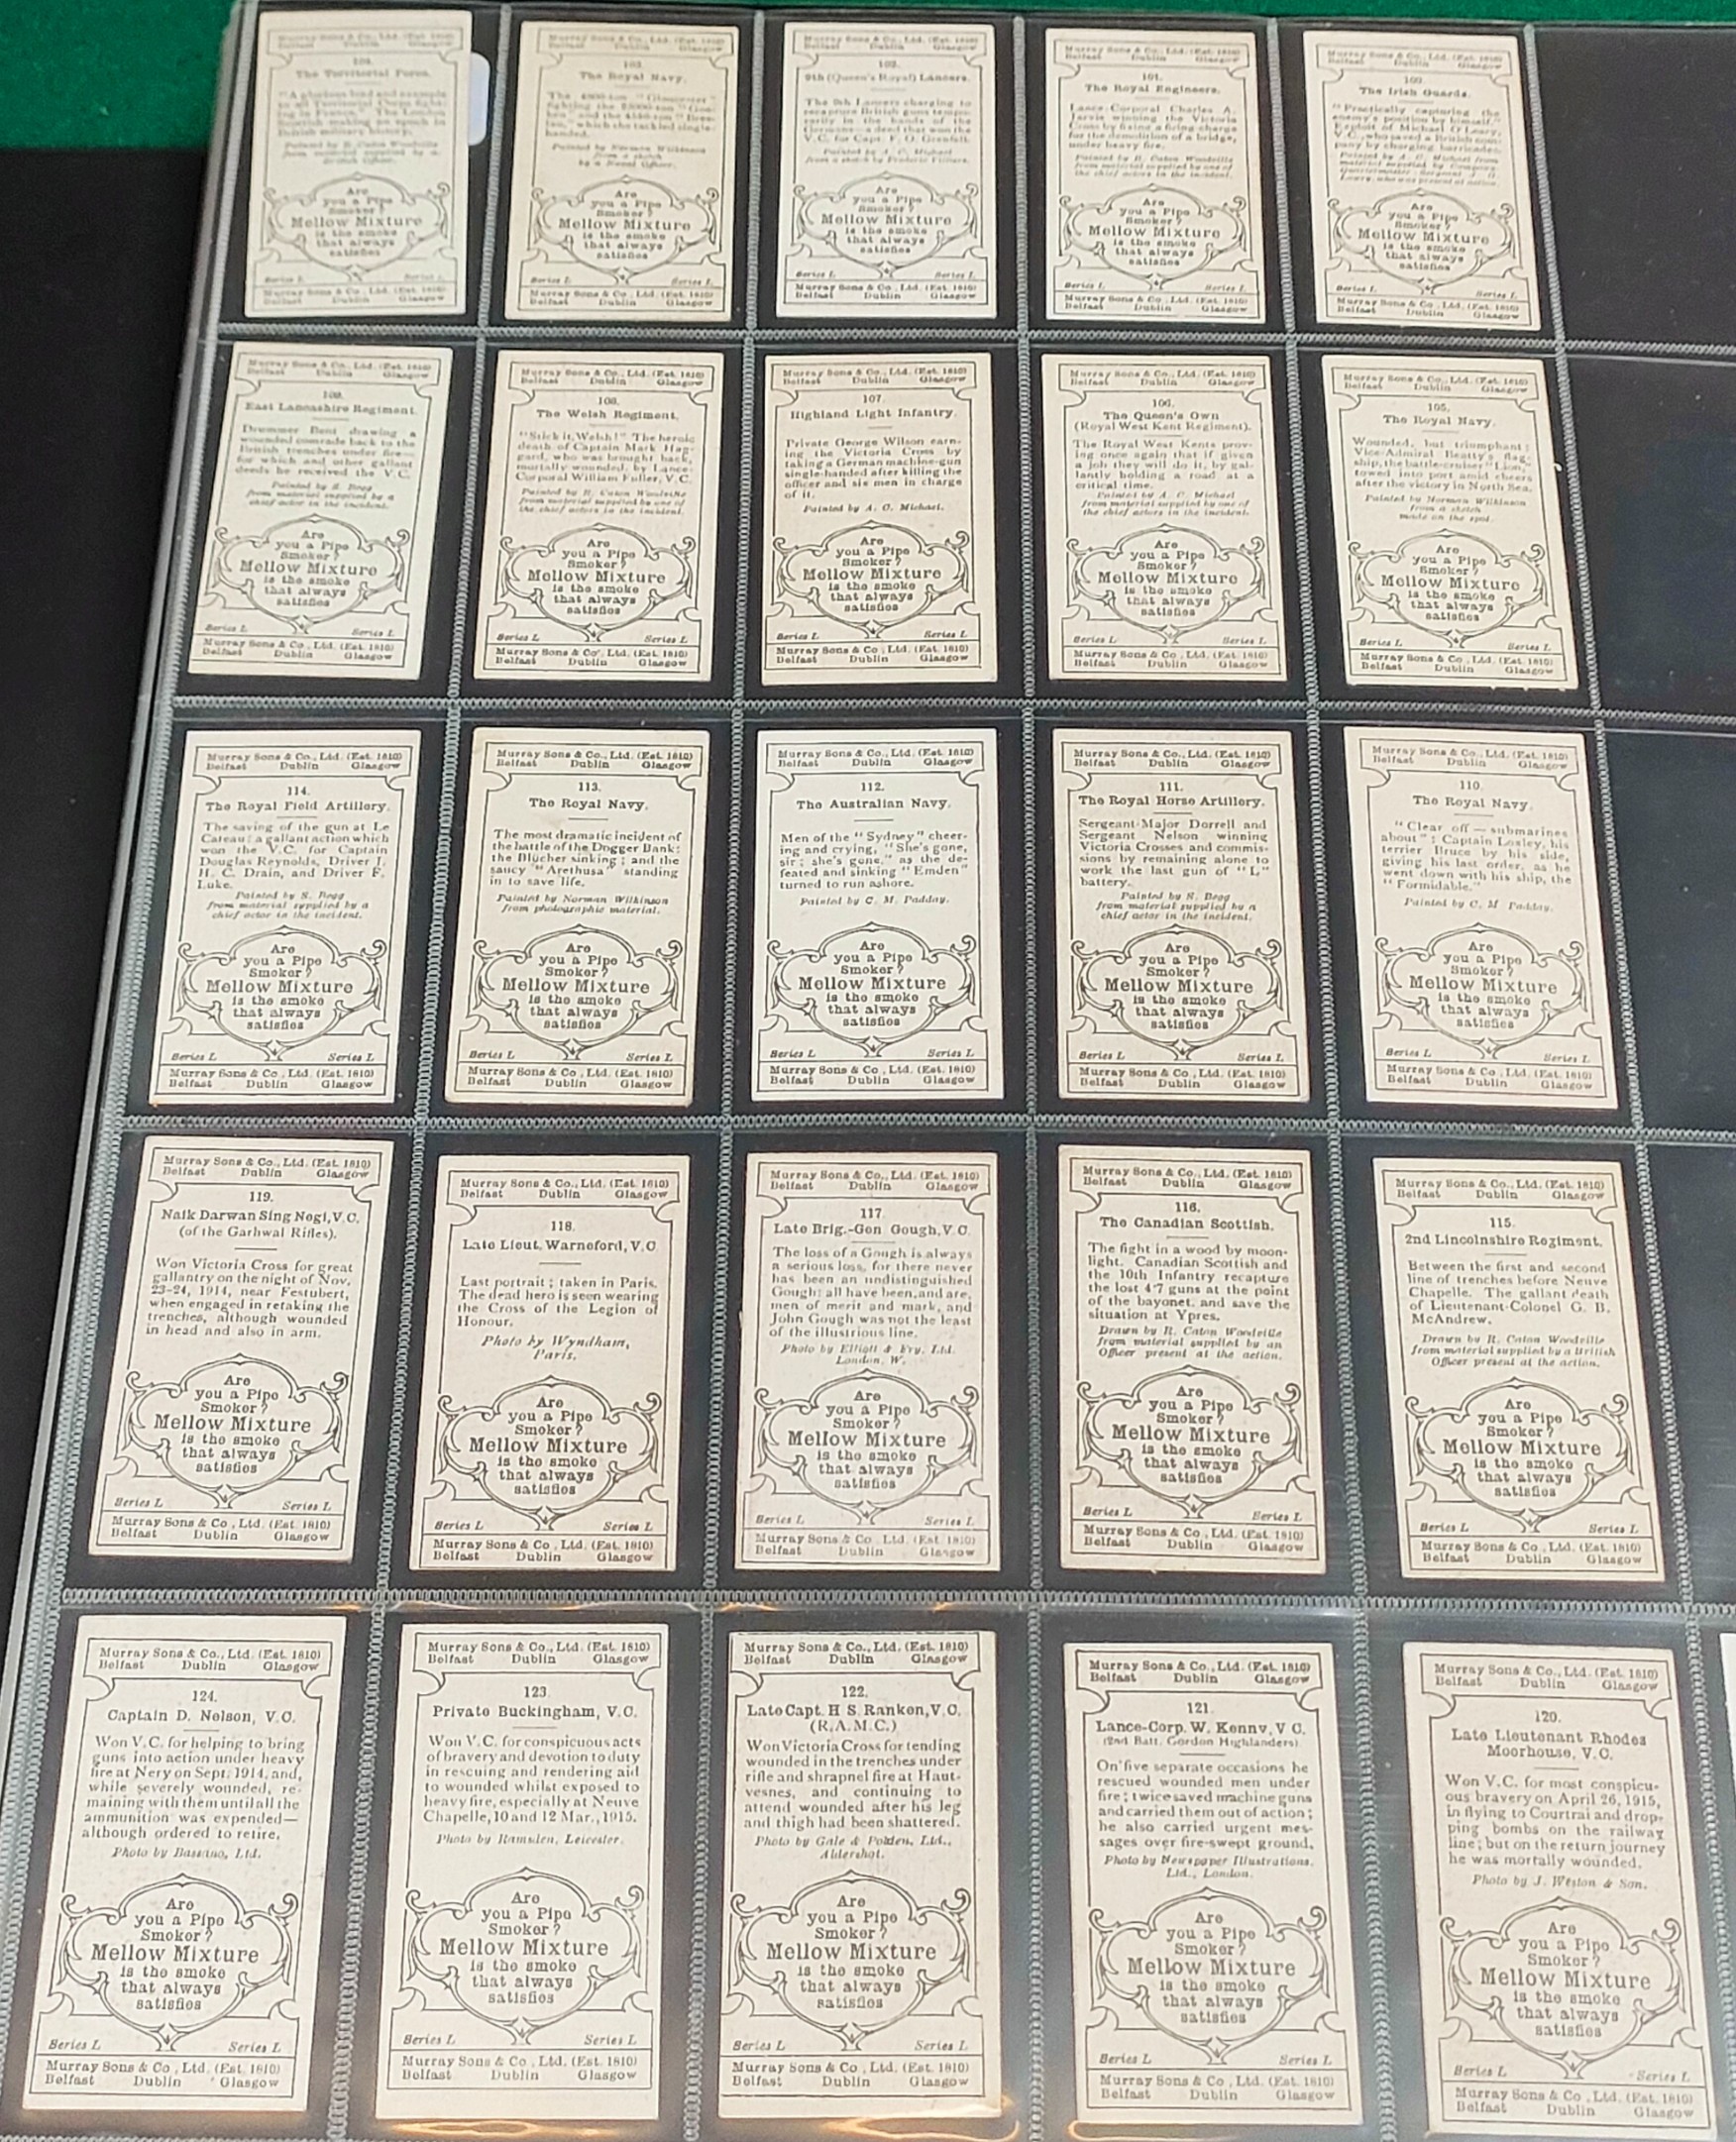 Murray Sons & Co., Ltd. (Est. 1810)
Belfast Dublin Glasgow
104.
The Territorial Force.
"A glorious lead and example
to all Territorial Corps fight-
ing in France." The London
Scottish making an epoch in
British military history.
Painted by R. Caton Woodville
from material supplied by a
British Officer.
Are
you a Pipe
Smoker?
Mellow Mixture
is the smoke
that always
satisfies
Series L Series L
Murray Sons & Co., Ltd. (Est. 1810)
Belfast Dublin Glasgow
Murray Sons & Co., Ltd. (Est. 1810)
Belfast Dublin Glasgow
103.
The Royal Navy.
The 4800-ton "Gloucester"
fighting the
and the "Bres-
lau," which she tackled single-
handed.
Painted by Norman Wilkinson
from a sketch
by a Naval Officer.
Are
you a Pipe
Smoker?
Mellow Mixture
is the smoke
that always
satisfies
Series L Series L
Murray Sons & Co., Ltd. (Est. 1810)
Belfast Dublin Glasgow
Murray Sons & Co., Ltd. (Est. 1810)
Belfast Dublin Glasgow
102.
9th (Queen's Royal) Lancers.
The 9th Lancers charging to
recapture British guns tempo-
rarily in the hands of the
Germans—a deed that won the
V.C. for Capt. F. O. Grenfell.
Painted by A. C. Michael
from a sketch by Frederic Villiers.
Are
you a Pipe
Smoker?
Mellow Mixture
is the smoke
that always
satisfies
Series L Series L
Murray Sons & Co., Ltd. (Est. 1810)
Belfast Dublin Glasgow
Murray Sons & Co., Ltd. (Est. 1810)
Belfast Dublin Glasgow
101.
The Royal Engineers.
Lance-Corporal Charles A.
Jarvis winning the Victoria
Cross by fixing a firing charge
for the demolition of a bridge,
under heavy fire.
Painted by R. Caton Woodville
from material supplied by one of
the chief actors in the incident.
Are
you a Pipe
Smoker?
Mellow Mixture
is the smoke
that always
satisfies
Series L Series L
Murray Sons & Co., Ltd. (Est. 1810)
Belfast Dublin Glasgow
Murray Sons & Co., Ltd. (Est. 1810)
Belfast Dublin Glasgow
100.
The Irish Guards.
"Practically capturing the
enemy's position by himself."
Exploit of Michael O'Leary,
V.C., who saved a British com-
pany by charging barricades.
Painted by A. C. Michael from
material supplied by Company
Quartermaster-Sergeant J. G.
Lowry, who was present at action.
Are
you a Pipe
Smoker?
Mellow Mixture
is the smoke
that always
satisfies
Series L Series L
Murray Sons & Co., Ltd. (Est. 1810)
Belfast Dublin Glasgow
Murray Sons & Co., Ltd. (Est. 1810)
Belfast Dublin Glasgow
109.
East Lancashire Regiment.
Drummer Bent drawing a
wounded comrade back to the
British trenches under fire—
for which and other gallant
deeds he received the V.C.
Painted by S. Begg
from material supplied by a
chief actor in the incident.
Are
you a Pipe
Smoker?
Mellow Mixture
is the smoke
that always
satisfies
Series L Series L
Murray Sons & Co., Ltd. (Est. 1810)
Belfast Dublin Glasgow
Murray Sons & Co., Ltd. (Est. 1810)
Belfast Dublin Glasgow
108.
The Welsh Regiment.
"Stick it, Welsh!" The heroic
death of Captain Mark Hag-
gard, who was brought back,
mortally wounded, by Lance-
Corporal William Fuller, V.C.
Painted by R. Caton Woodville
from material supplied by one of
the chief actors in the incident.
Are
you a Pipe
Smoker?
Mellow Mixture
is the smoke
that always
satisfies
Series L Series L
Murray Sons & Co., Ltd. (Est. 1810)
Belfast Dublin Glasgow
Murray Sons & Co., Ltd. (Est. 1810)
Belfast Dublin Glasgow
107.
Highland Light Infantry.
Private George Wilson earn-
ing the Victoria Cross by
taking a German machine-gun
single-handed after killing the
officer and six men in charge
of it.
Painted by A. C. Michael.
Are
you a Pipe
Smoker?
Mellow Mixture
is the smoke
that always
satisfies
Series L Series L
Murray Sons & Co., Ltd. (Est. 1810)
Belfast Dublin Glasgow
Murray Sons & Co., Ltd. (Est. 1810)
Belfast Dublin Glasgow
106.
The Queen's Own
(Royal West Kent Regiment).
The Royal West Kents prov-
ing once again that if given
a job they will do it, by gal-
lantly holding a road at a
critical time.
Painted by A. C. Michael
from material supplied by one of
the chief actors in the incident.
Are
you a Pipe
Smoker?
Mellow Mixture
is the smoke
that always
satisfies
Series L Series L
Murray Sons & Co., Ltd. (Est. 1810)
Belfast Dublin Glasgow
Murray Sons & Co., Ltd. (Est. 1810)
Belfast Dublin Glasgow
105.
The Royal Navy.
Wounded, but triumphant:
Vice-Admiral Beatty's flag-
ship, the battle-cruiser "Lion,"
towed into port amid cheers
after the victory in North Sea.
Painted by Norman Wilkinson
from a sketch
made on the spot.
Are
you a Pipe
Smoker?
Mellow Mixture
is the smoke
that always
satisfies
Series L Series L
Murray Sons & Co., Ltd. (Est. 1810)
Belfast Dublin Glasgow
Murray Sons & Co., Ltd. (Est. 1810)
Belfast Dublin Glasgow
114.
The Royal Field Artillery.
The saving of the gun at Le
Cateau: a gallant action which
won the V.C. for Captain
Douglas Reynolds, Driver J.
H. C. Drain, and Driver F.
Luke.
Painted by S. Begg
from material supplied by a
chief actor in the incident.
Are
you a Pipe
Smoker?
Mellow Mixture
is the smoke
that always
satisfies
Series L Series L
Murray Sons & Co., Ltd. (Est. 1810)
Belfast Dublin Glasgow
Murray Sons & Co., Ltd. (Est. 1810)
Belfast Dublin Glasgow
113.
The Royal Navy.
The most dramatic incident of
the battle of the Dogger Bank:
the Blücher sinking; and the
saucy "Arethusa" standing
in to save life.
Painted by Norman Wilkinson
from photographic material.
Are
you a Pipe
Smoker?
Mellow Mixture
is the smoke
that always
satisfies
Series L Series L
Murray Sons & Co., Ltd. (Est. 1810)
Belfast Dublin Glasgow
Murray Sons & Co., Ltd. (Est. 1810)
Belfast Dublin Glasgow
112.
The Australian Navy.
Men of the "Sydney" cheer-
ing and crying, "She's gone,
sir; she's gone," as the de-
feated and sinking "Emden"
turned to run ashore.
Painted by C. M. Padday.
Are
you a Pipe
Smoker?
Mellow Mixture
is the smoke
that always
satisfies
Series L Series L
Murray Sons & Co., Ltd. (Est. 1810)
Belfast Dublin Glasgow
Murray Sons & Co., Ltd. (Est. 1810)
Belfast Dublin Glasgow
111.
The Royal Horse Artillery.
Sergeant-Major Dorrell and
Sergeant Nelson winning
Victoria Crosses and commis-
sions by remaining alone to
work the last gun of "L"
battery.
Painted by S. Begg
from material supplied by a
chief actor in the incident.
Are
you a Pipe
Smoker?
Mellow Mixture
is the smoke
that always
satisfies
Series L Series L
Murray Sons & Co., Ltd. (Est. 1810)
Belfast Dublin Glasgow
Murray Sons & Co., Ltd. (Est. 1810)
Belfast Dublin Glasgow
110.
The Royal Navy.
"Clear off — submarines
about"; Captain Loxley, his
terrier Bruce by his side,
giving his last order, as he
went down with his ship, the
"Formidable."
Painted by C. M Padday.
Are
you a Pipe
Smoker?
Mellow Mixture
is the smoke
that always
satisfies
Series L Series L
Murray Sons & Co., Ltd. (Est. 1810)
Belfast Dublin Glasgow
Murray Sons & Co., Ltd. (Est. 1810)
Belfast Dublin Glasgow
119.
Naik Darwan Sing Negi, V.C.
(of the Garhwal Rifles).
Won Victoria Cross for great
gallantry on the night of Nov.
23-24, 1914, near Festubert,
when engaged in retaking the
trenches, although wounded
in head and also in arm.
Are
you a Pipe
Smoker?
Mellow Mixture
is the smoke
that always
satisfies
Series L Series L
Murray Sons & Co., Ltd. (Est. 1810)
Belfast Dublin Glasgow
Murray Sons & Co., Ltd. (Est. 1810)
Belfast Dublin Glasgow
118.
Late Lieut. Warneford, V.C
Last portrait; taken in Paris.
The dead hero is seen wearing
the Cross of the Legion of
Honour.
Photo by Wyndham,
Paris.
Are
you a Pipe
Smoker?
Mellow Mixture
is the smoke
that always
satisfies
Series L Series L
Murray Sons & Co., Ltd. (Est. 1810)
Belfast Dublin Glasgow
Murray Sons & Co., Ltd. (Est. 1810)
Belfast Dublin Glasgow
117.
Late Brig.-Gen Gough, V.C.
The loss of a Gough is always
a serious loss, for there never
has been an undistinguished
Gough: all have been, and are,
men of merit and mark, and
John Gough was not the least
of the illustrious line.
Photo by Elliott & Fry, Ltd.
London, W.
Are
you a Pipe
Smoker?
Mellow Mixture
is the smoke
that always
satisfies
Series L Series L
Murray Sons & Co., Ltd. (Est. 1810)
Belfast Dublin Glasgow
Murray Sons & Co., Ltd. (Est. 1810)
Belfast Dublin Glasgow
116.
The Canadian Scottish.
The fight in a wood by moon-
light. Canadian Scottish and
the 10th Infantry recapture
the lost 4·7 guns at the point
of the bayonet, and save the
situation at Ypres.
Drawn by R. Caton Woodville
from material supplied by an
Officer present at the action.
Are
you a Pipe
Smoker?
Mellow Mixture
is the smoke
that always
satisfies
Series L Series L
Murray Sons & Co., Ltd. (Est. 1810)
Belfast Dublin Glasgow
Murray Sons & Co., Ltd. (Est. 1810)
Belfast Dublin Glasgow
115.
2nd Lincolnshire Regiment.
Between the first and second
line of trenches before Neuve
Chapelle. The gallant death
of Lieutenant-Colonel G. B.
McAndrew.
Drawn by R. Caton Woodville
from material supplied by a British
Officer present at the action.
Are
you a Pipe
Smoker?
Mellow Mixture
is the smoke
that always
satisfies
Series L Series L
Murray Sons & Co., Ltd. (Est. 1810)
Belfast Dublin Glasgow
Murray Sons & Co., Ltd. (Est. 1810)
Belfast Dublin Glasgow
124.
Captain D. Nelson, V.C.
Won V.C. for helping to bring
guns into action under heavy
fire at Nery on Sept. 1914, and,
while severely wounded, re-
maining with them until all the
ammunition was expended—
although ordered to retire.
Photo by Bassano, Ltd.
Are
you a Pipe
Smoker?
Mellow Mixture
is the smoke
that always
satisfies
Series L Series L
Murray Sons & Co., Ltd. (Est. 1810)
Belfast Dublin Glasgow
Murray Sons & Co., Ltd. (Est. 1810)
Belfast Dublin Glasgow
123.
Private Buckingham, V.C.
Won V.C. for conspicuous acts
of bravery and devotion to duty
in rescuing and rendering aid
to wounded whilst exposed to
heavy fire, especially at Neuve
Chapelle, 10 and 12 Mar., 1915.
Photo by Ramsden, Leicester.
Are
you a Pipe
Smoker?
Mellow Mixture
is the smoke
that always
satisfies
Series L Series L
Murray Sons & Co., Ltd. (Est. 1810)
Belfast Dublin Glasgow
Murray Sons & Co., Ltd. (Est. 1810)
Belfast Dublin Glasgow
122.
Late Capt. H S. Ranken, V.C.
(R.A.M.C.)
Won Victoria Cross for tending
wounded in the trenches under
rifle and shrapnel fire at Haut-
vesnes, and continuing to
attend wounded after his leg
and thigh had been shattered.
Photo by Gale & Polden, Ltd.,
Aldershot.
Are
you a Pipe
Smoker?
Mellow Mixture
is the smoke
that always
satisfies
Series L Series L
Murray Sons & Co., Ltd. (Est. 1810)
Belfast Dublin Glasgow
Murray Sons & Co., Ltd. (Est. 1810)
Belfast Dublin Glasgow
121.
Lance-Corp. W. Kenny, V C.
(2nd. Batt. Gordon Highlanders).
On five separate occasions he
rescued wounded men under
fire; twice saved machine guns
and carried them out of action;
he also carried urgent mes-
sages over fire-swept ground.
Photo by Newspaper Illustrations,
Ltd., London.
Are
you a Pipe
Smoker?
Mellow Mixture
is the smoke
that always
satisfies
Series L Series L
Murray Sons & Co., Ltd. (Est. 1810)
Belfast Dublin Glasgow
Murray Sons & Co., Ltd. (Est. 1810)
Belfast Dublin Glasgow
120.
Late Lieutenant Rhodes
Moorhouse, V.C.
Won V.C. for most conspicu-
ous bravery on April 26, 1915,
in flying to Courtrai and drop-
ping bombs on the railway
line; but on the return journey
he was mortally wounded.
Photo by J. Weston & Son.
Are
you a Pipe
Smoker?
Mellow Mixture
is the smoke
that always
satisfies
Series L Series L
Murray Sons & Co., Ltd. (Est. 1810)
Belfast Dublin Glasgow